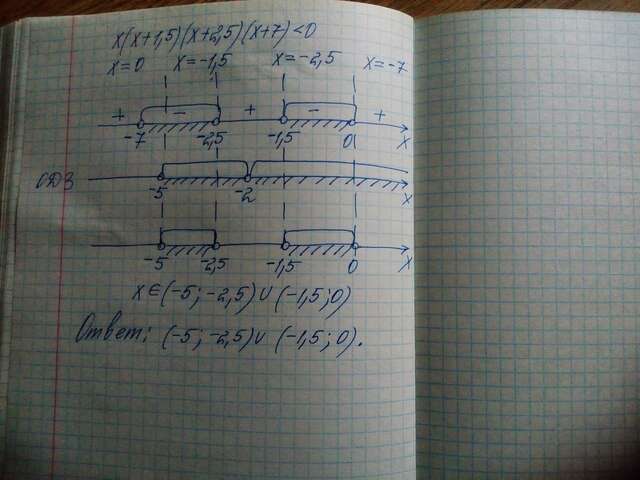 x(x+1,5)(x+2,5)(x+7)<0
x=0 x=-1,5 x=-2,5 x=-7
+ - + - +
-7 -2,5 -1,5 0 x
ОДЗ
-5 -2 x
-5 -2,5 -1,5 0 x
x∈(-5;-2,5)∪(-1,5;0)
Ответ: (-5;-2,5)∪(-1,5;0).